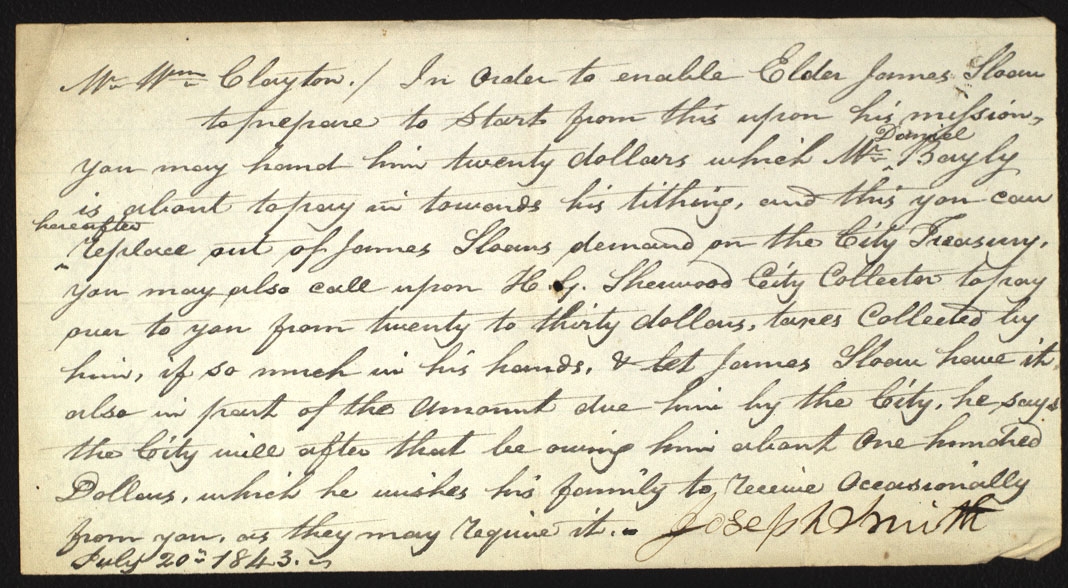 Mr. Wm. Clayton./ In order to enable Elder James Sloan
to prepare to Start from this upon his mission,
Daniel
you may hand him twenty dollars which Mr. ^ Bayly
is about to pay in towards his tithing, and this you can
hereafter
^ replace out of James Sloans demand on the City Treasury.
you may also call upon H. G. Sherwood City Collector to pay
over to you from twenty to thirty dollars, taxes Collected by
him, if so much in his hands, & let James Sloan have it,
also in part of the Amount due him by the City, he says
the City will after that be owing him about One hundred
Dollars, which he wishes his family to receive Occasionally
from you, as they may require it.- Joseph Smith
July 20th 1843.